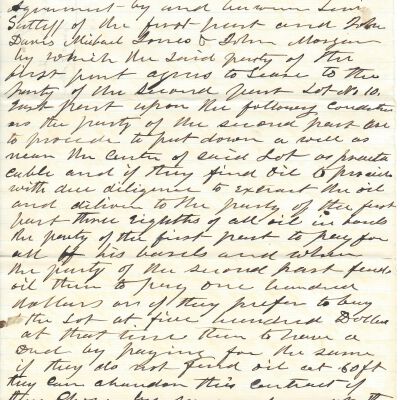 Agreement by and between Levi
Sutliff of the first part and John
Davis Michael Jones & John Morgan
by which the said party of the
first part agrees to Lease to the
party of the second part Lot No 10.
East part upon the following condition
as the party of the second part are
to procede to put down a well as
near the center of said Lot as practa
cable and if they find oil to procede
with due diligence to extract the oil
and deliver to the party of the first
part three eighths of all oil in barels
the party of the first part to pay for
all of his barels and when
the party of the second part finds
oil then to pay one hundred
dollars or if they prefer to buy
the Lot at five hundred Dollars
at that time then to have a
Deed by paying for the same
if they do not find oil at 60 ft
they can abandon this contract if